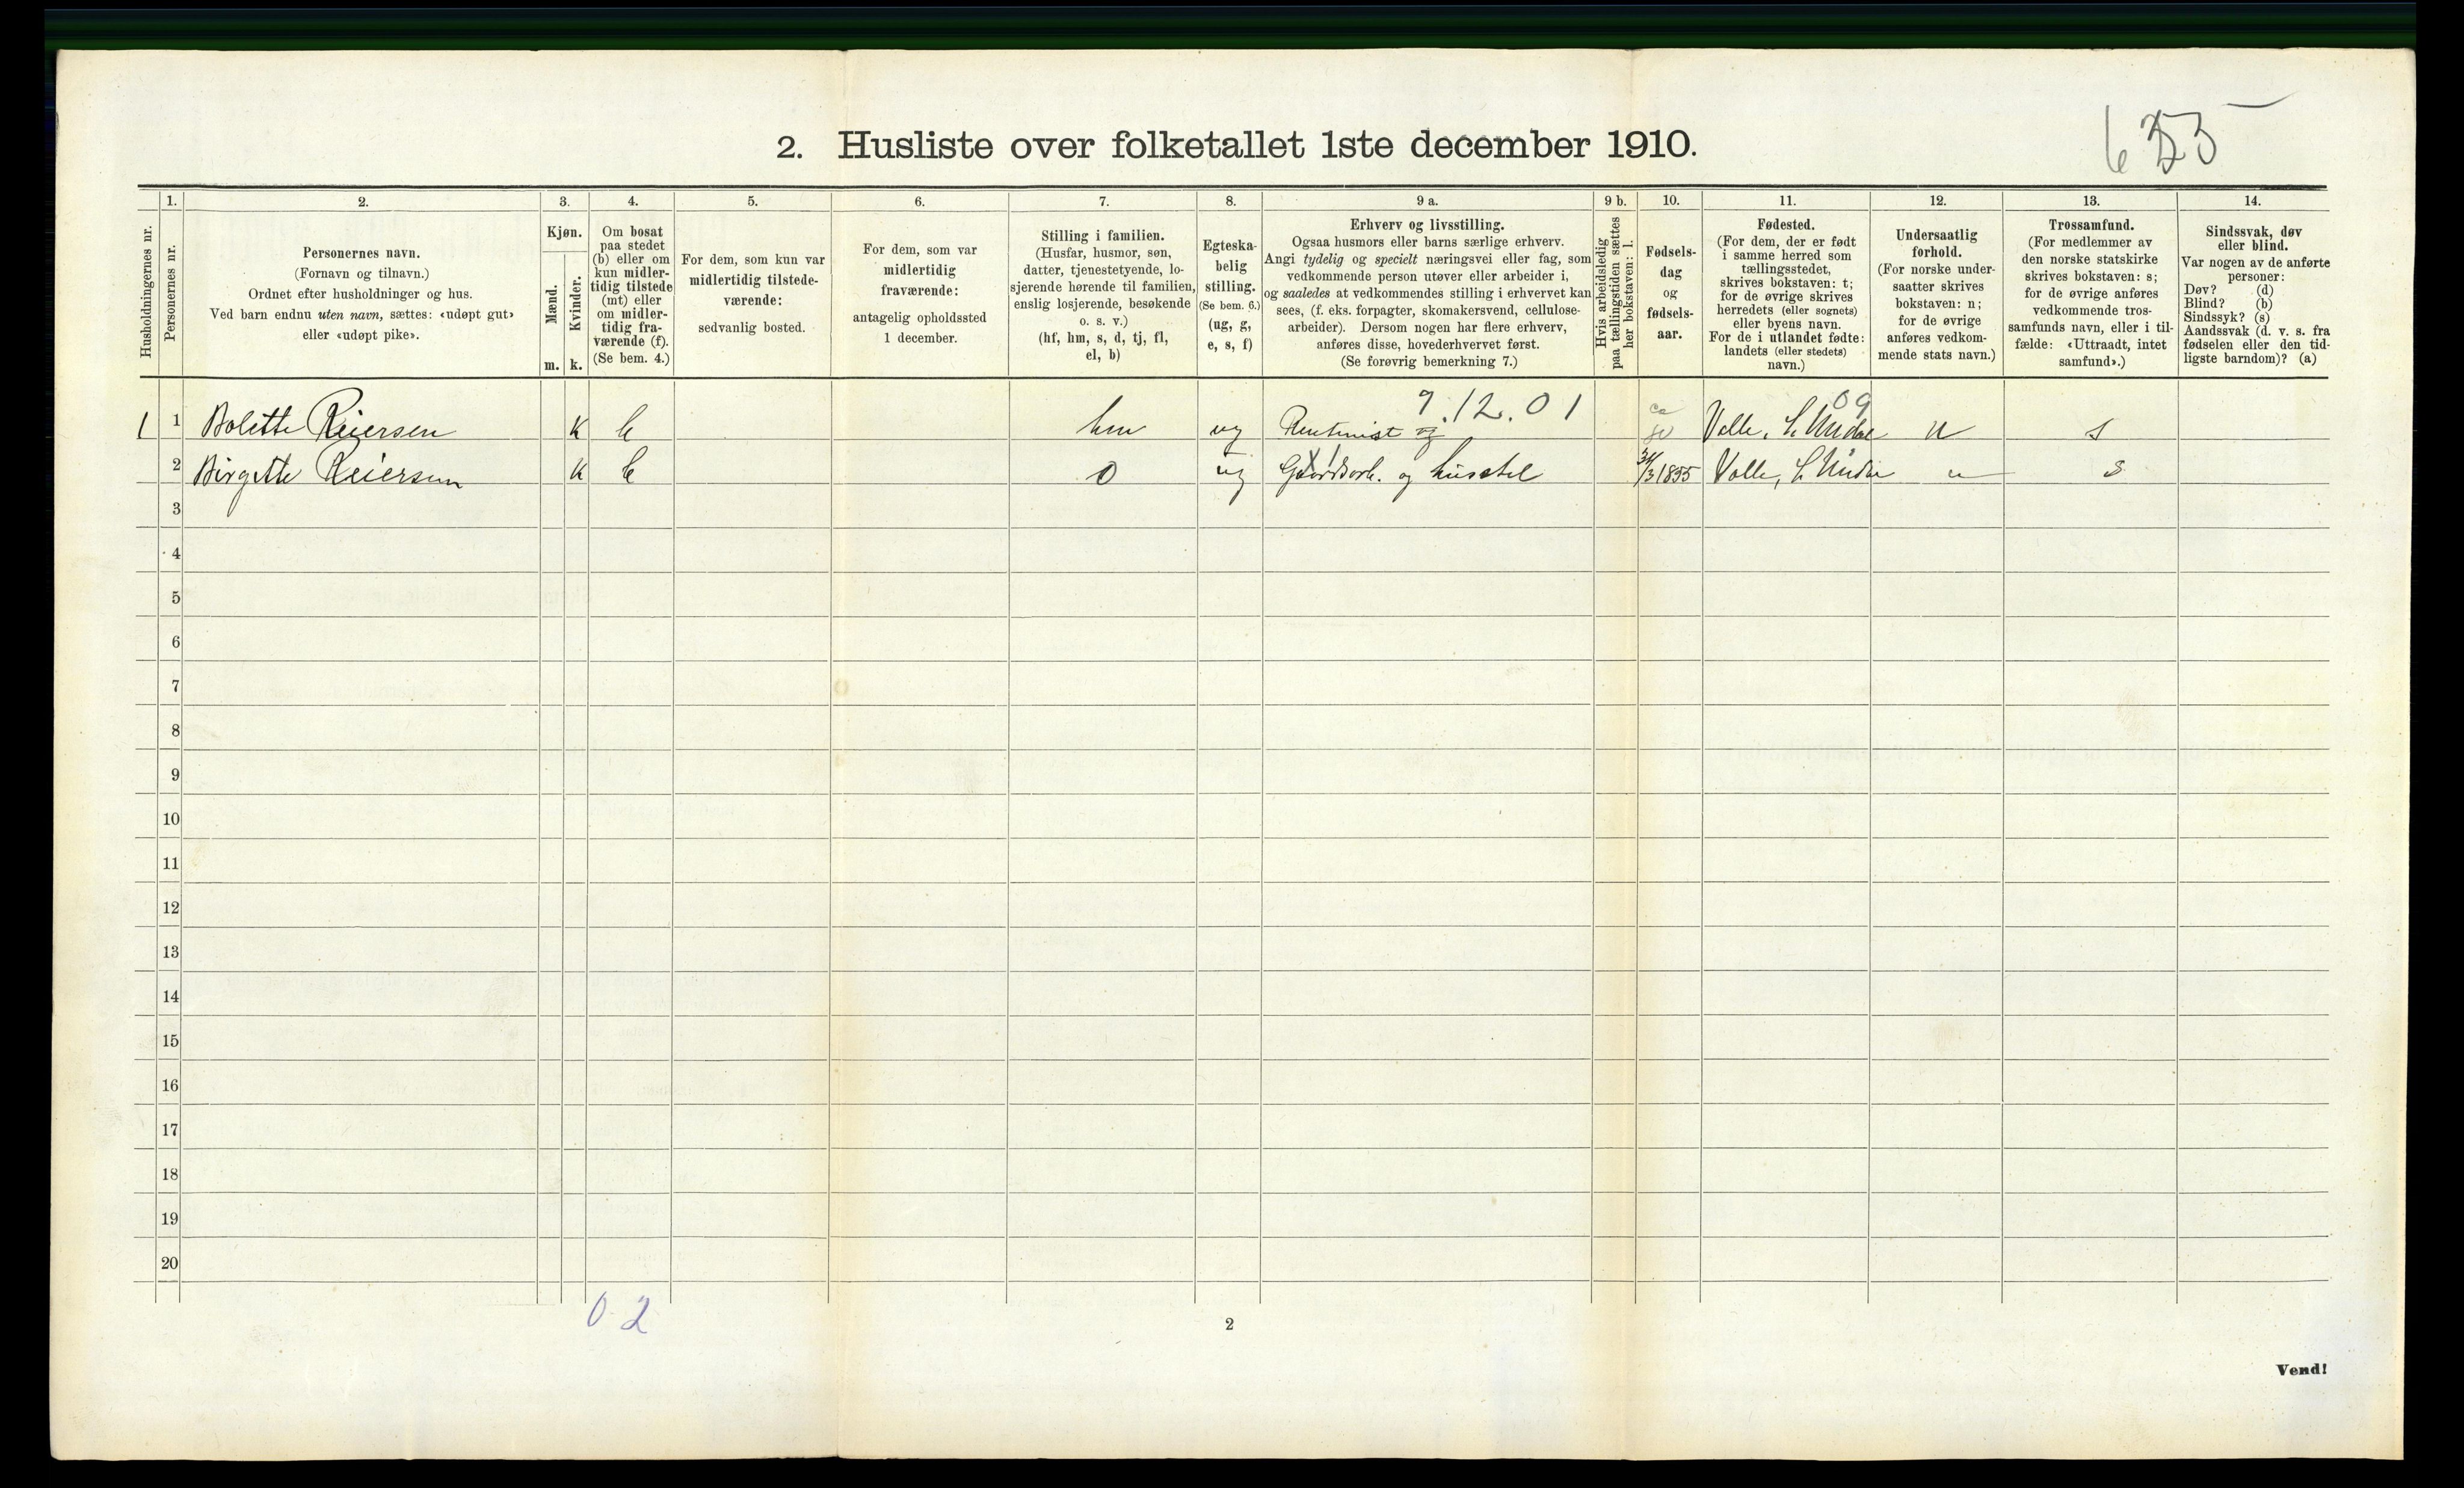 2. Husliste over folketallet 1ste december 1910.
1.
2.
3.
4.
5.
6.
7.
8.
9 a.
9 b.
10.
11.
12.
13.
14.
Husholdningernes nr.
Personernes nr.
Personernes navn.
(Fornavn og tilnavn.)
Ordnet efter husholdninger og hus.
Ved barn endnu uten navn, sættes: «udøpt gut»
eller «udøpt pike».
Kjøn.
Mænd.
Kvinder.
m. k.
Om bosat
paa stedet
(b) eller om
kun midler-
tidig tilstede
(mt) eller
om midler-
tidig fra-
værende (f).
(Se bem. 4.)
For dem, som kun var
midlertidig tilstede-
værende:
sedvanlig bosted.
For dem, som var
midlertidig
fraværende:
antagelig opholdssted
1 december.
Stilling i familien.
(Husfar, husmor, søn,
datter, tjenestetyende, lo-
sjerende hørende til familien,
enslig losjerende, besøkende
o. s. v.)
(hf, hm, s, d, tj, fl,
el, b)
Egteska-
belig
stilling.
(Se bem. 6.)
(ug, g,
e, s, f)
Erhverv og livsstilling.
Ogsaa husmors eller barns særlige erhverv.
Angi tydelig og specielt næringsvei eller fag, som
vedkommende person utøver eller arbeider i,
og saaledes at vedkommendes stilling i erhvervet kan
sees, (f. eks. forpagter, skomakersvend, cellulose-
arbeider). Dersom nogen har flere erhverv,
anføres disse, hovederhvervet først.
(Se forøvrig bemerkning 7.)
Hvis arbeidsledig
paa tællingstiden sættes
her bokstaven: l.
Fødsels-
dag
og
fødsels-
aar.
Fødested.
(For dem, der er født
i samme herred som
tællingsstedet,
skrives bokstaven: t;
for de øvrige skrives
herredets (eller sognets)
eller byens navn.
For de i utlandet fødte:
landets (eller stedets)
navn.)
Undersaatlig
forhold.
(For norske under-
saatter skrives
bokstaven: n;
for de øvrige
anføres vedkom-
mende stats navn.)
Trossamfund.
(For medlemmer av
den norske statskirke
skrives bokstaven: s;
for de øvrige anføres
vedkommende tros-
samfunds navn, eller i til-
fælde: «Uttraadt, intet
samfund».)
Sindssvak, døv
eller blind.
Var nogen av de anførte
personer:
Døv? (d)
Blind? (b)
Sindssyk? (s)
Aandssvak (d. v. s. fra
fødselen eller den tid-
ligste barndom)? (a)
9.12.01
09
1 1 Bolette Reiersen K b hm ug Rentenist og ca Valle, S. Undal n s
2 Birgitte Reiersen K b d ug Gaardsarb. og husstel Valle, S. Undal n s
3
4
5
6
7
8
9
10
11
12
13
14
15
16
17
18
19
20
0 2
2
Vend!